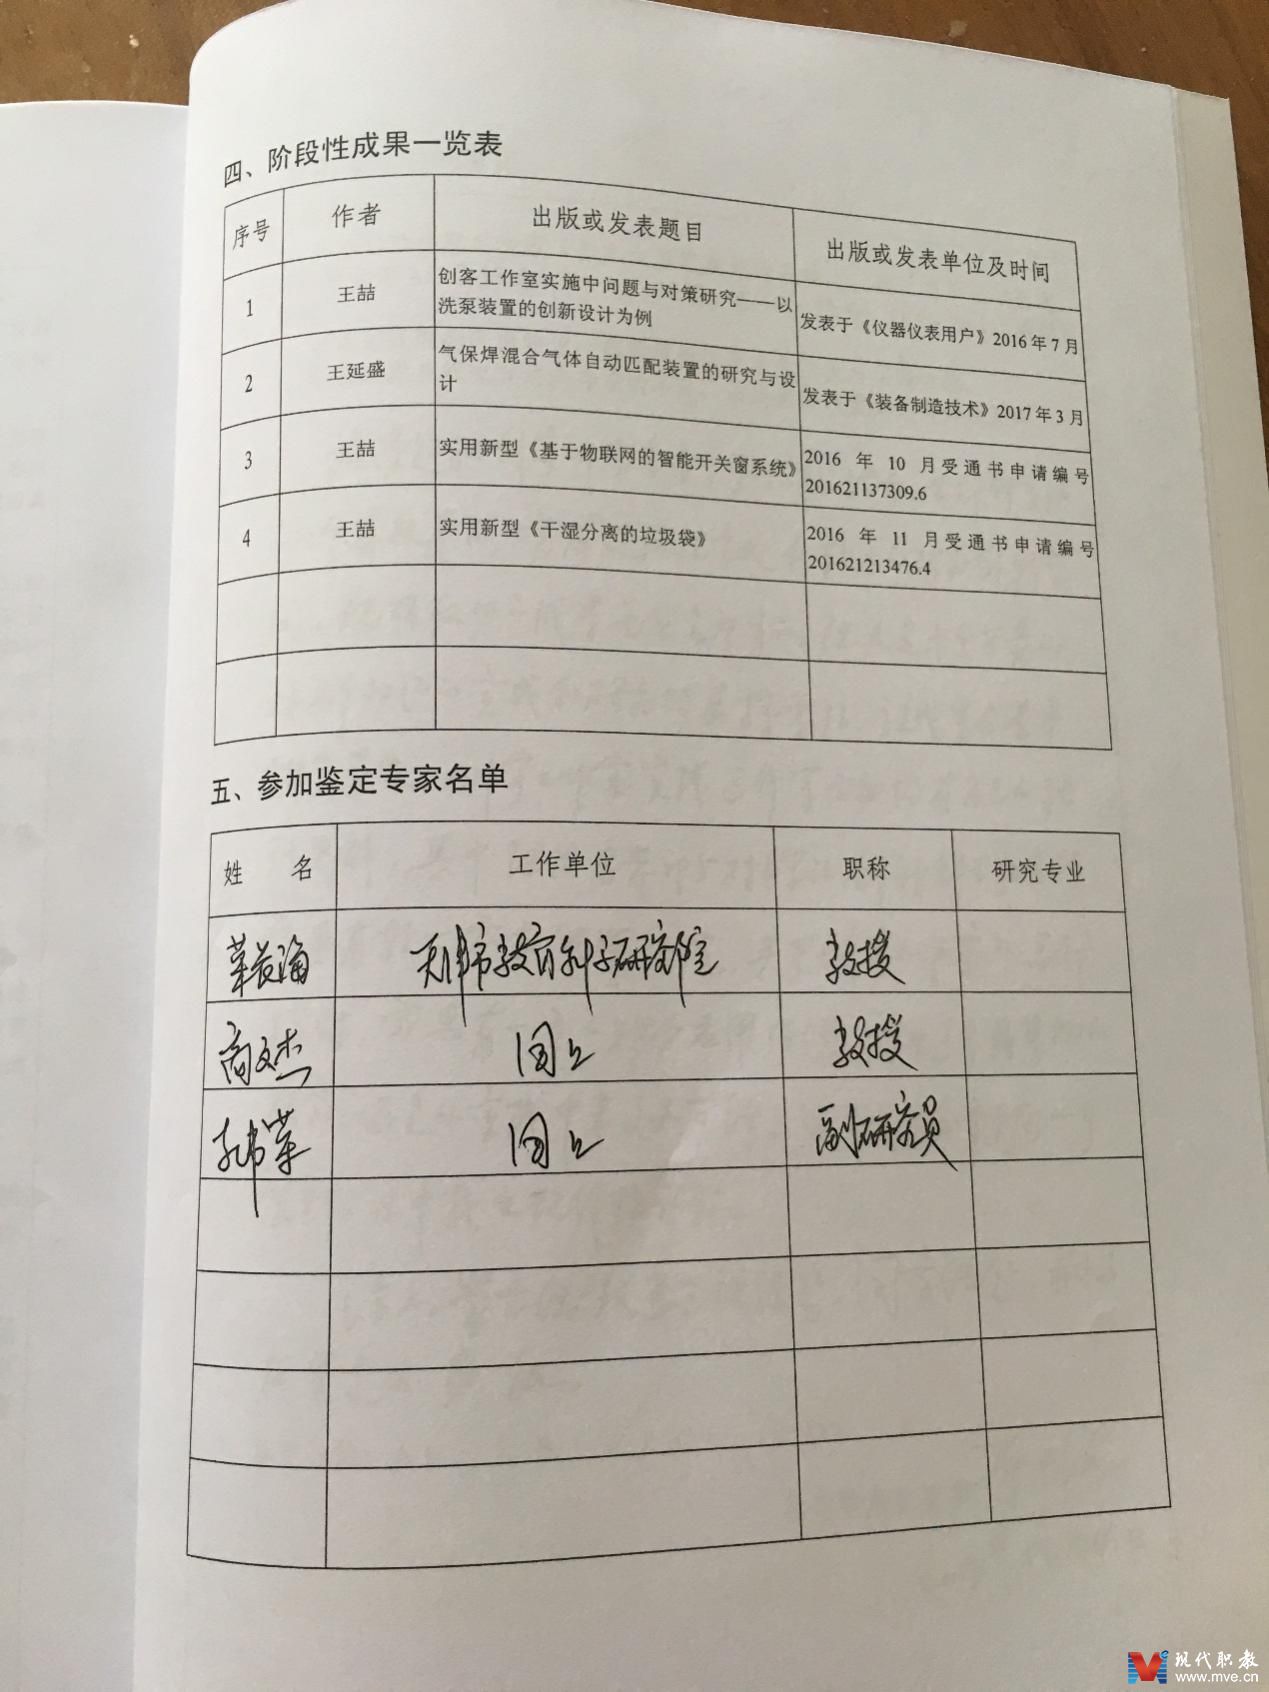 四、阶段性成果一览表
序号 作者 出版或发表题目 出版或发表单位及时间
1 王喆 创客工作室实施中问题与对策研究——以
洗泵装置的创新设计为例 发表于《仪器仪表用户》2016年7月
2 王延盛 气保焊混合气体自动匹配装置的研究与设
计 发表于《装备制造技术》2017年3月
3 王喆 实用新型《基于物联网的智能开关窗系统》 2016 年 10 月受通书申请编号
201621137309.6
4 王喆 实用新型《干湿分离的垃圾袋》 2016 年 11 月受通书申请编号
201621213476.4
五、参加鉴定专家名单
姓 名 工作单位 职称 研究专业
天津市教育科学研究院 教授
同上 教授
同上 副研究员
现代职教
www.mve.cn